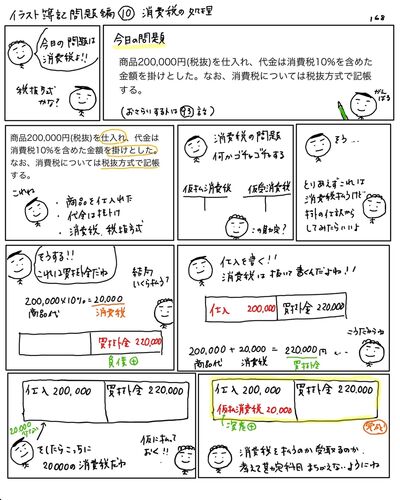 イラスト簿記問題編⑩ 消費税の処理
168
今日の問題は
消費税よ!!
税抜方式
かな?
今日の問題
商品200,000円(税抜)を仕入れ、代金は消費税10%を含めた
金額を掛けとした。なお、消費税については税抜方式で記帳
する。
がんばろう
商品200,000円(税抜)を仕入れ、代金は
消費税10%を含めた金額を掛けとした。
なお、消費税については税抜方式で記帳
する。
これね
・商品を仕入れた
・代金は掛け
・消費税、税抜方式
消費税の問題
何かゴチャゴチャする
仮払消費税
仮受消費税
この勘定?
そう…
とりあえずこれは
してみたらいいよ
そうする!!
これは買掛金だね
結局
いくら払う?
200,000×10%=20,000
商品代
消費税
買掛金 220,000
負債⊕
仕入を書く!!
消費税は抜いて書くんだよね!!
仕入 200,000
買掛金 220,000
こうだからね
200,000 + 20,000 = 220,000円
商品代
消費税
買掛金
仕入 200,000
買掛金 220,000
20,000
そしたらこっちに
20000の消費税だね
仮に払って
おく!!
仕入 200,000
買掛金 220,000
仮払消費税 20,000
資産⊕
完成!
消費税を払うのか受取るのか
考えて勘定科目まちがえないようにね